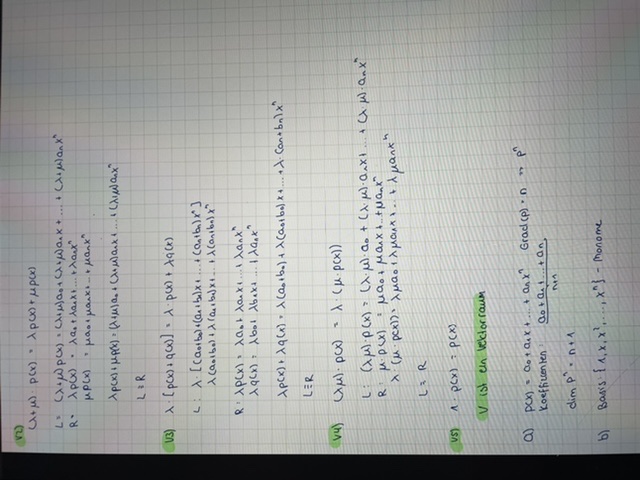 V2)
(λ+μ) · p(x) = λp(x) + μp(x)
L = (λ+μ)p(x) = (λ+μ)a₀ + (λ+μ)a₁x + ... + (λ+μ)aₙxⁿ
R = λp(x) = λa₀ + λa₁x + ... + λaₙxⁿ
μp(x) = μa₀ + μa₁x + ... + μaₙxⁿ
λp(x) + μp(x) = (λ+μ)a₀ + (λ+μ)a₁x + ... + (λ+μ)aₙxⁿ
L = R
V3) λ · [p(x) + q(x)] = λ · p(x) + λq(x)
L : λ · [(a₀+b₀) + (a₁+b₁)x + ... + (aₙ+bₙ)xⁿ]
λ(a₀+b₀) + λ(a₁+b₁)x + ... + λ(aₙ+bₙ)xⁿ
R : λp(x) = λa₀ + λa₁x + ... + λaₙxⁿ
λq(x) = λb₀ + λb₁x + ... + λaₙxⁿ
λp(x) + λq(x) = λ(a₀+b₀) + λ(a₁+b₁)x + ... + λ · (aₙ+bₙ)xⁿ
L = R
V4) (λμ) · p(x) = λ · (μ · p(x))
L : (λμ) · p(x) = (λ·μ) · a₀ + (λ·μ) · a₁x + ... + (λ·μ) · aₙxⁿ
R : μ · p(x) = μa₀ + μa₁x + ... + μaₙxⁿ
λ(μ · p(x)) = λμa₀ + λμa₁x + ... + λμaₙxⁿ
L = R
V5) 1 · p(x) = p(x)
V ist ein Vektorraum
a) p(x) = a₀ + a₁x + ... + aₙxⁿ Grad(p) = n ↔ pⁿ
Koeffizienten: a₀ + a₁ + ... + aₙ
n+1
dim Pⁿ = n+1
b) Basis: {1, x, x², ..., xⁿ} - Monome